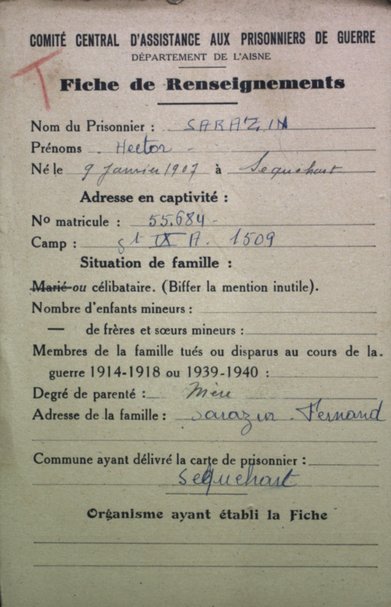 COMITÉ CENTRAL D'ASSISTANCE AUX PRISONNIERS DE GUERRE
DÉPARTEMENT DE L'AISNE
T
Fiche de Renseignements
Nom du Prisonnier : SARAZIN
Prénoms . Hector -
Né le 9 Janvier 1907 à Sequehart
Adresse en captivité :
No matricule : 55.684 -
Camp : IX A. 1509
Situation de famille :
Marié ou célibataire. (Biffer la mention inutile).
Nombre d'enfants mineurs :
— de frères et sœurs mineurs :
Membres de la famille tués ou disparus au cours de la
guerre 1914-1918 ou 1939-1940 :
Degré de parenté : Mère
Adresse de la famille : Sarazin Fernand
Commune ayant délivré la carte de prisonnier :
Sequehart
Organisme ayant établi la Fiche